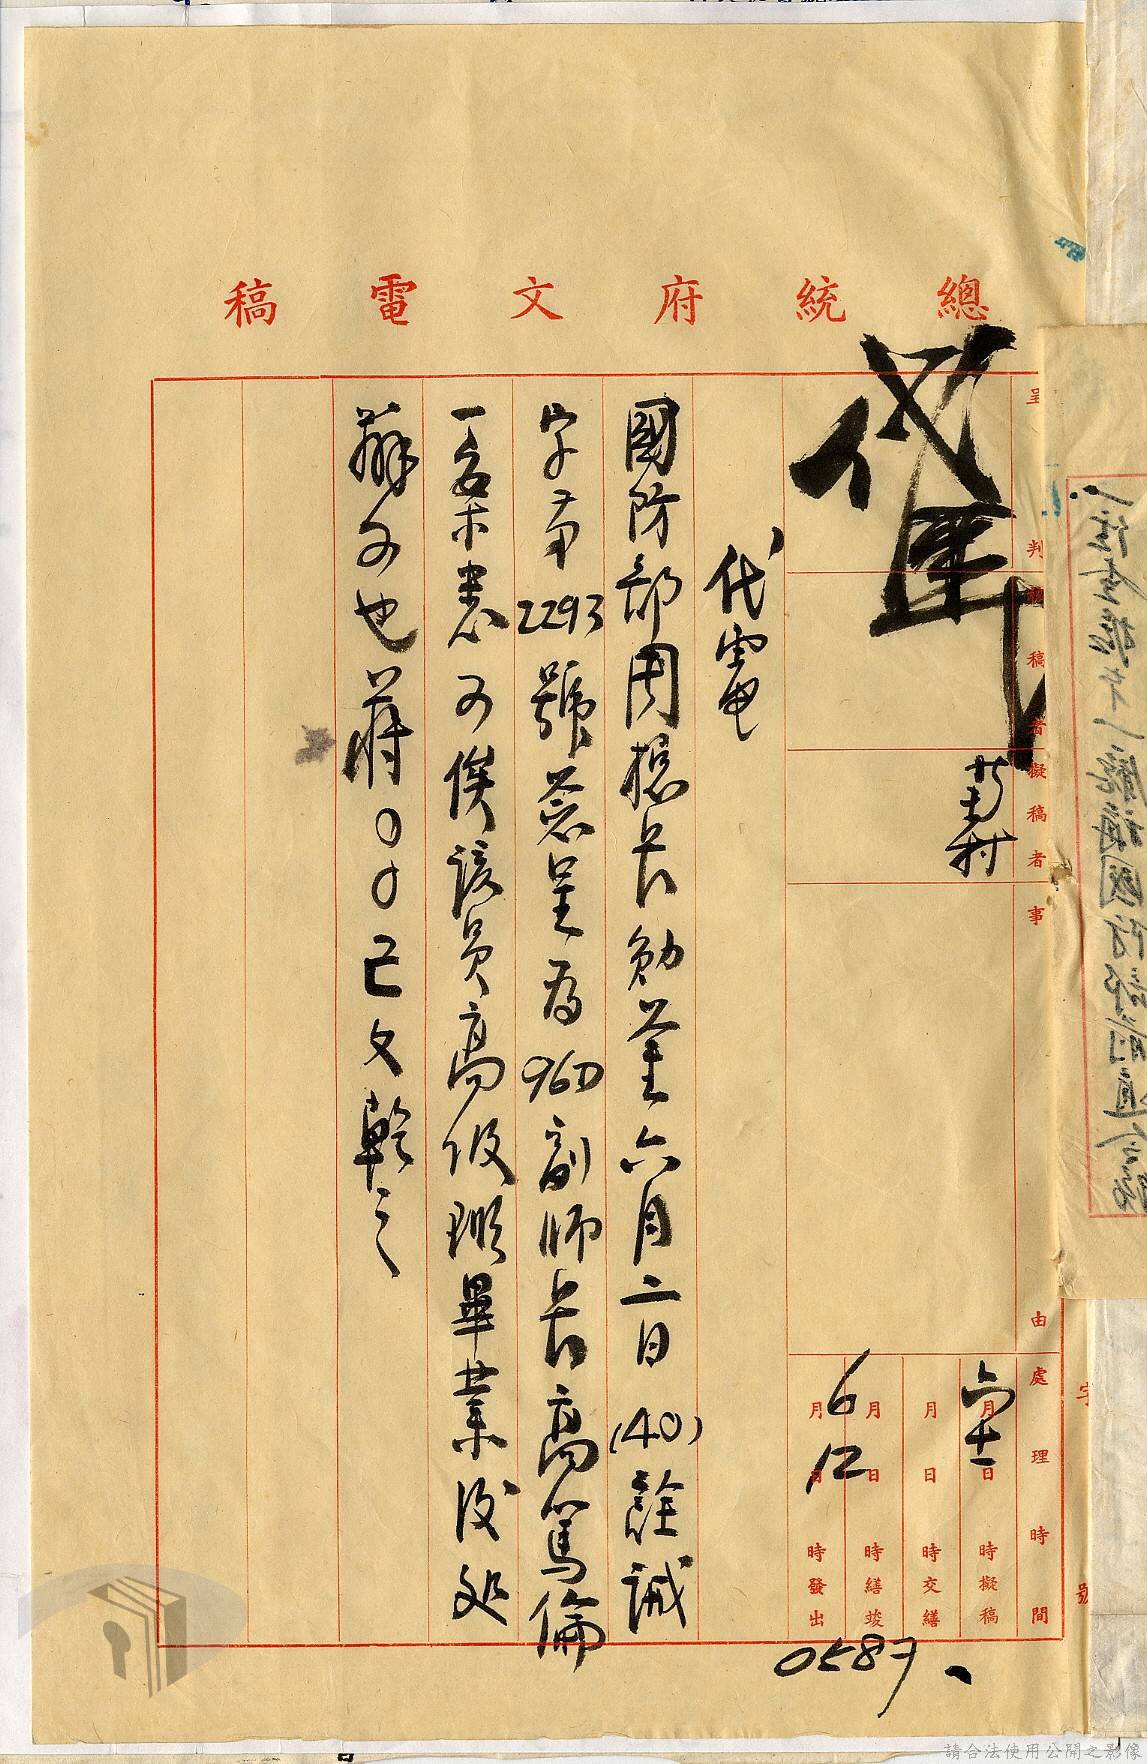 總統府文電稿
呈判
核稿者
擬稿者
事由
處理時間
六月十一日時擬稿
月日時交繕
月日時繕竣
6月12日時發出
字號
代電
國防部周總長勛鑒六月二日(40)詮誠
字第2293號簽呈為96D副師長高篤倫
一案悉可俟該員高級班畢業後処
辦可也蔣〇〇已文乾
0587
請合法使用公開之影像